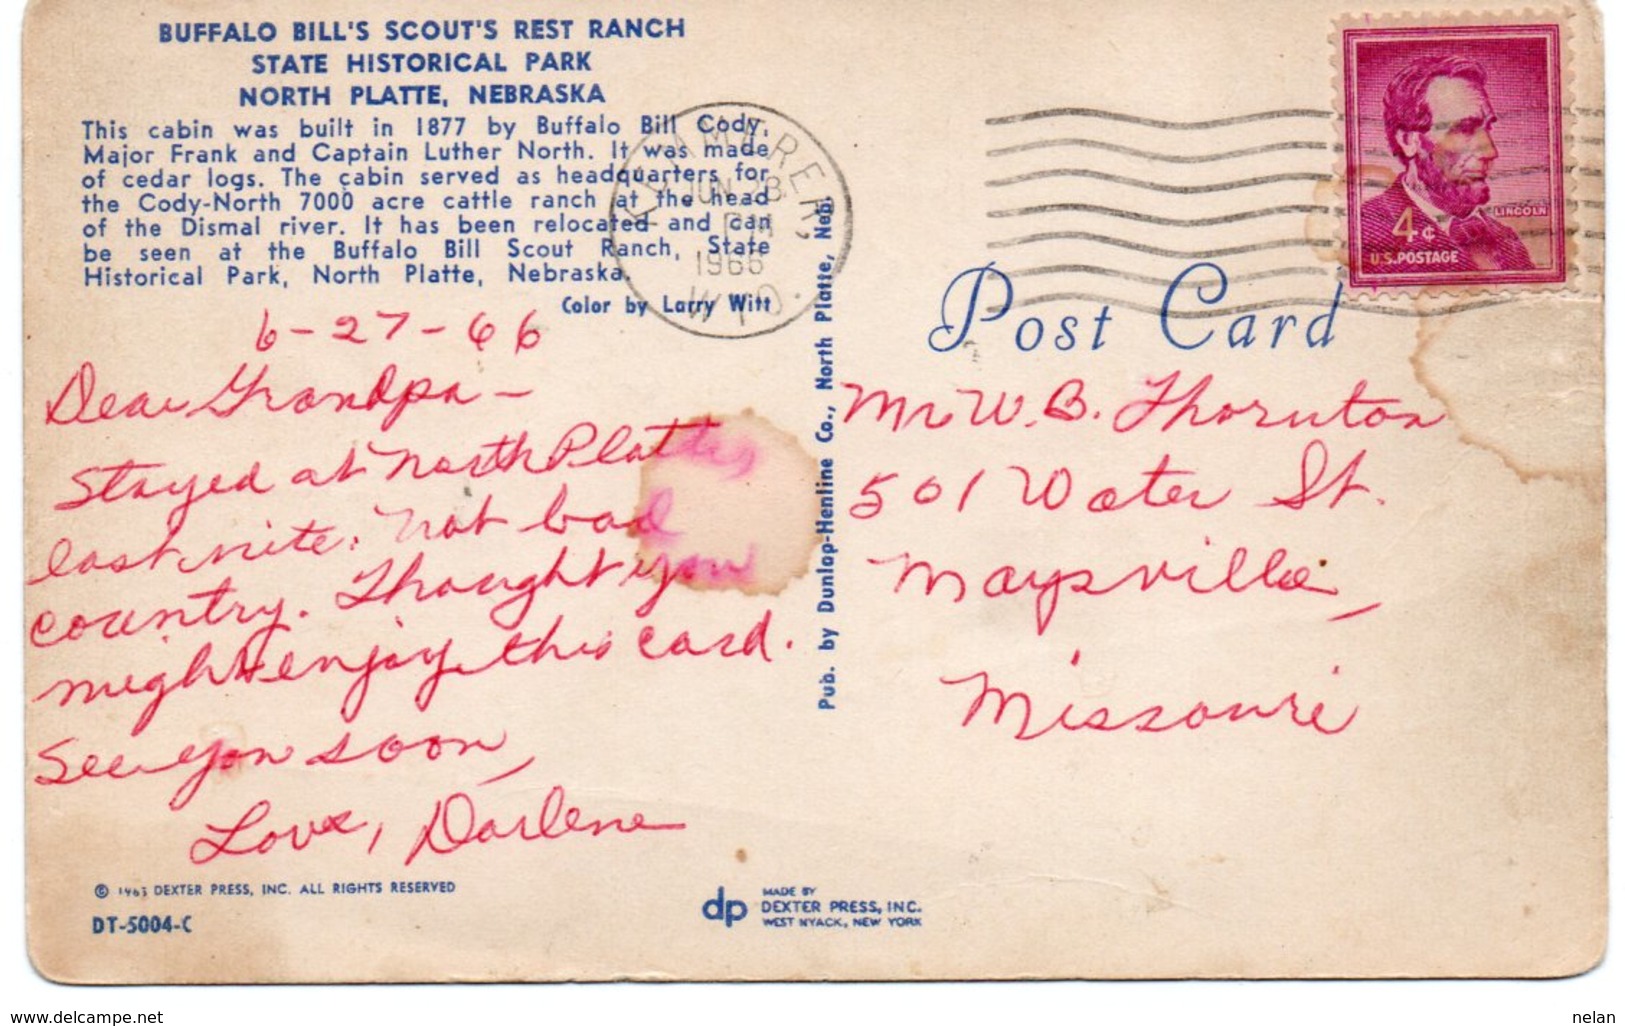 BUFFALO BILL'S SCOUT'S REST RANCH
STATE HISTORICAL PARK
NORTH PLATTE, NEBRASKA
This cabin was built in 1877 by Buffalo Bill Cody,
Major Frank and Captain Luther North. It was made
of cedar logs. The cabin served as headquarters for
the Cody-North 7000 acre cattle ranch at the head
of the Dismal river. It has been relocated and can
be seen at the Buffalo Bill Scout Ranch, State
Historical Park, North Platte, Nebraska.
Color by Larry Witt
6-27-66
Dear Grandpa -
Stayed at North Platte,
last nite. Not bad
country. Thought you
might enjoy this card.
See you soon,
Love, Darlene
© 1963 DEXTER PRESS, INC. ALL RIGHTS RESERVED
DT-5004-C
dp
MADE BY
DEXTER PRESS, INC.
WEST NYACK, NEW YORK
Pub. by Dunlap-Henline Co., North Platte, Neb.
KEMMERER,
JUN 28
PM
1966
WYO.
LINCOLN
4¢
U.S. POSTAGE
Post Card
Mr W. B. Thornton
501 Water St.
Maysville,
Missouri
www.delcampe.net
nelan